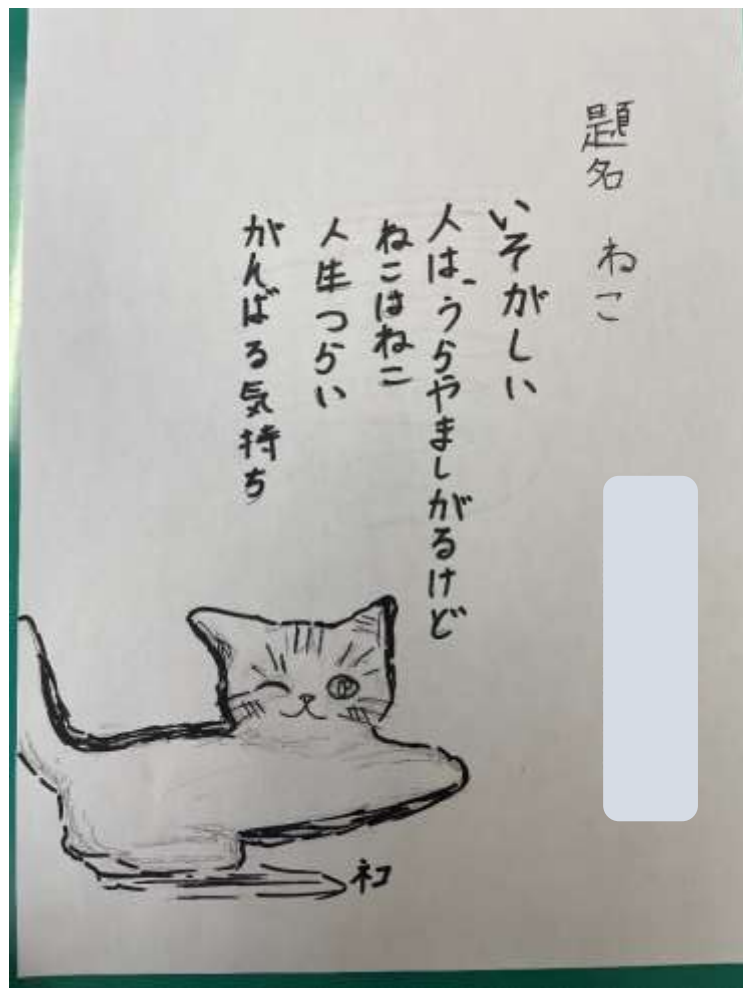 題名 ねこ
いそがしい
人は、うらやましがるけど
ねこはねこ
人生つらい
がんばる気持ち
ネコ